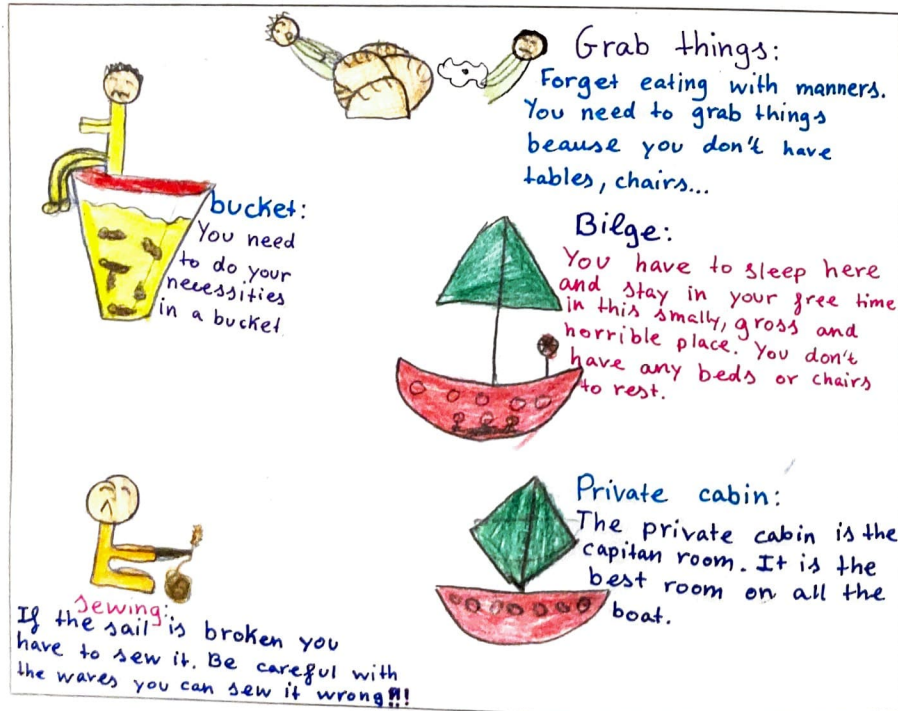 Grab things:
Forget eating with manners.
You need to grab things
beause you don't have
tables, chairs...
bucket:
You need
to do your
necessities
in a bucket
Bilge:
You have to sleep here
and stay in your free time
in this smally, gross and
horrible place. You don't
have any beds or chairs
to rest.
Private cabin:
The private cabin is the
capitan room. It is the
best room on all the
boat.
sewing:
If the sail is broken you
have to sew it. Be careful with
the waves you can sew it wrong!!!